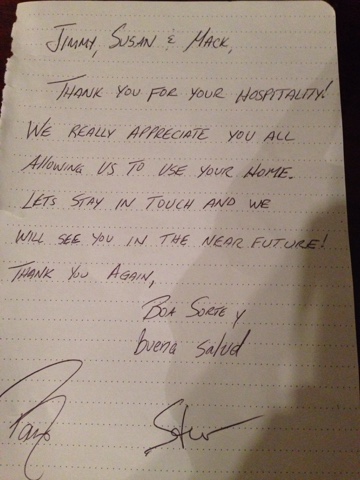 Jimmy, Susan & Mack,
Thank you for your hospitality!
We really appreciate you all
allowing us to use your home.
Lets stay in touch and we
will see you in the near future!
Thank you again,
Boa Sorte y
buena salud